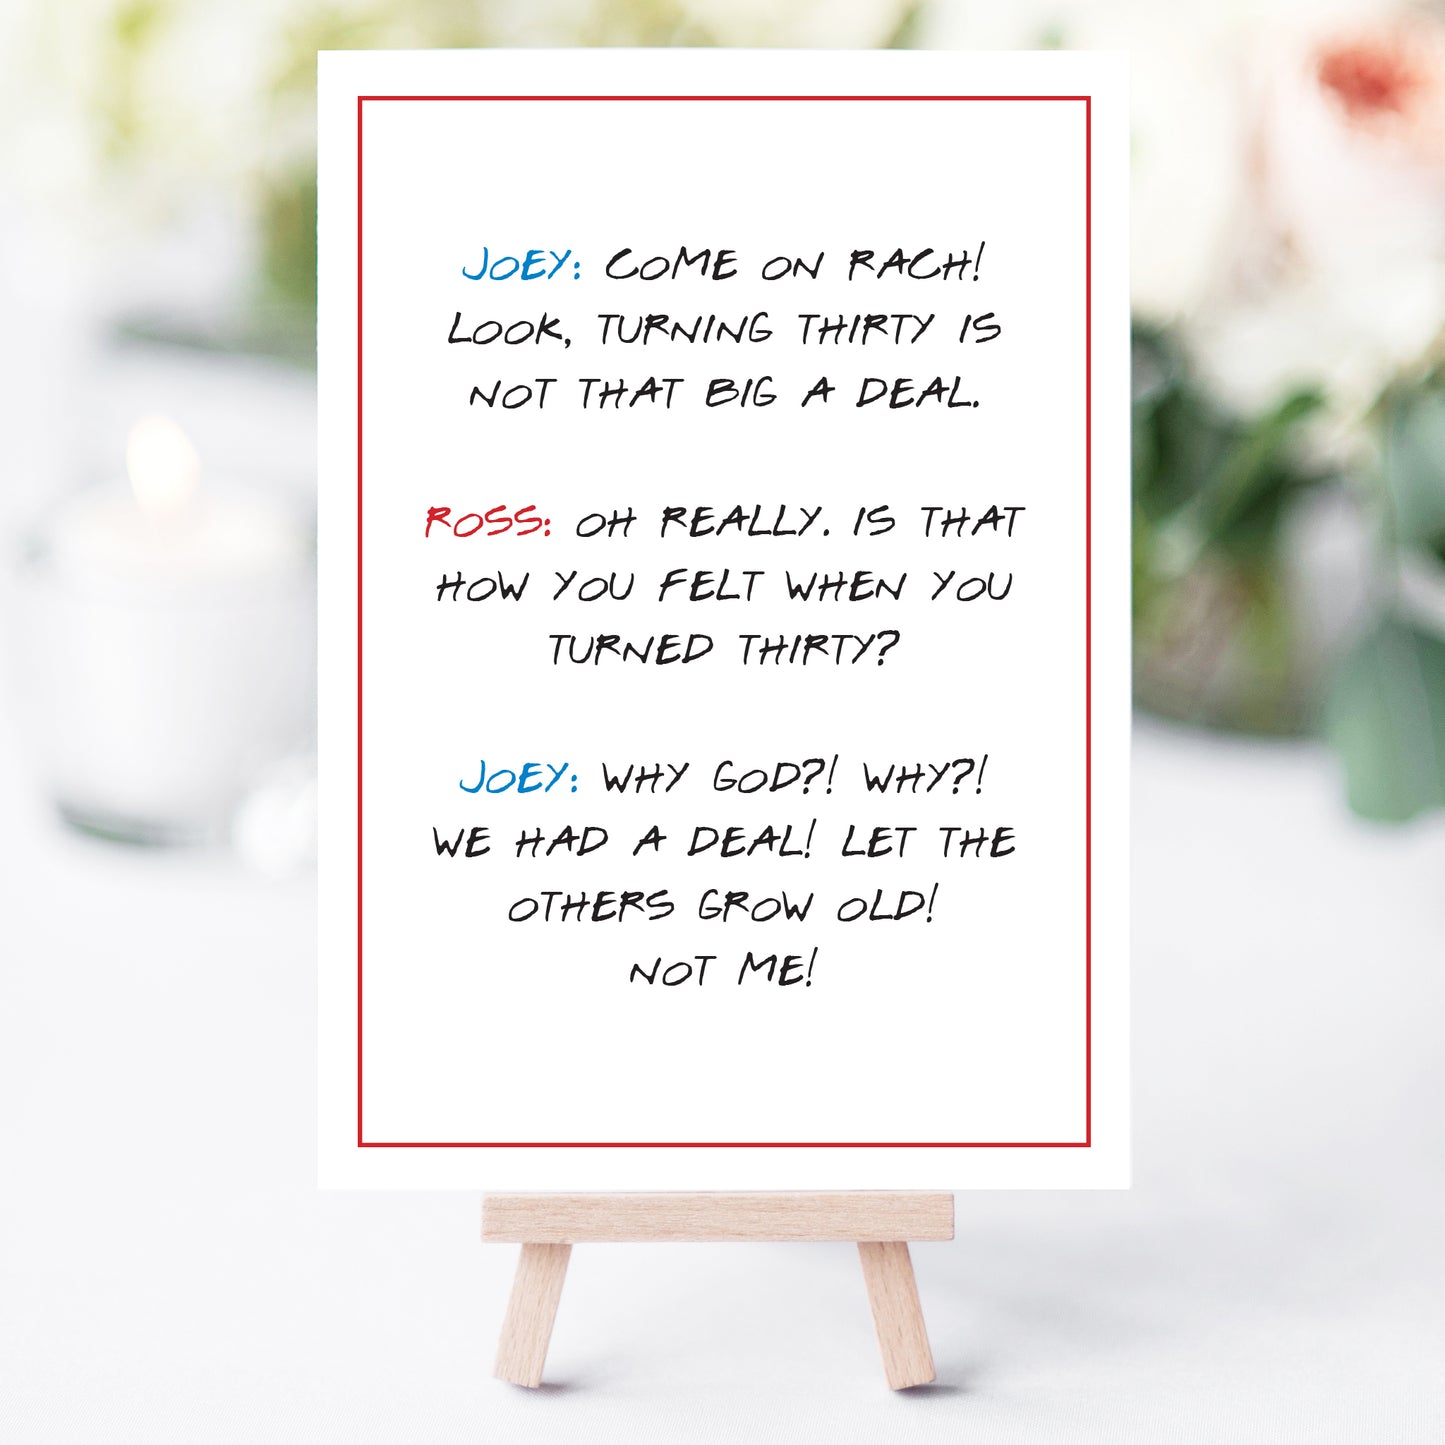 JOEY: COME ON RACH!
LOOK, TURNING THIRTY IS
NOT THAT BIG A DEAL.
ROSS: OH REALLY. IS THAT
HOW YOU FELT WHEN YOU
TURNED THIRTY?
JOEY: WHY GOD?! WHY?!
WE HAD A DEAL! LET THE
OTHERS GROW OLD!
NOT ME!